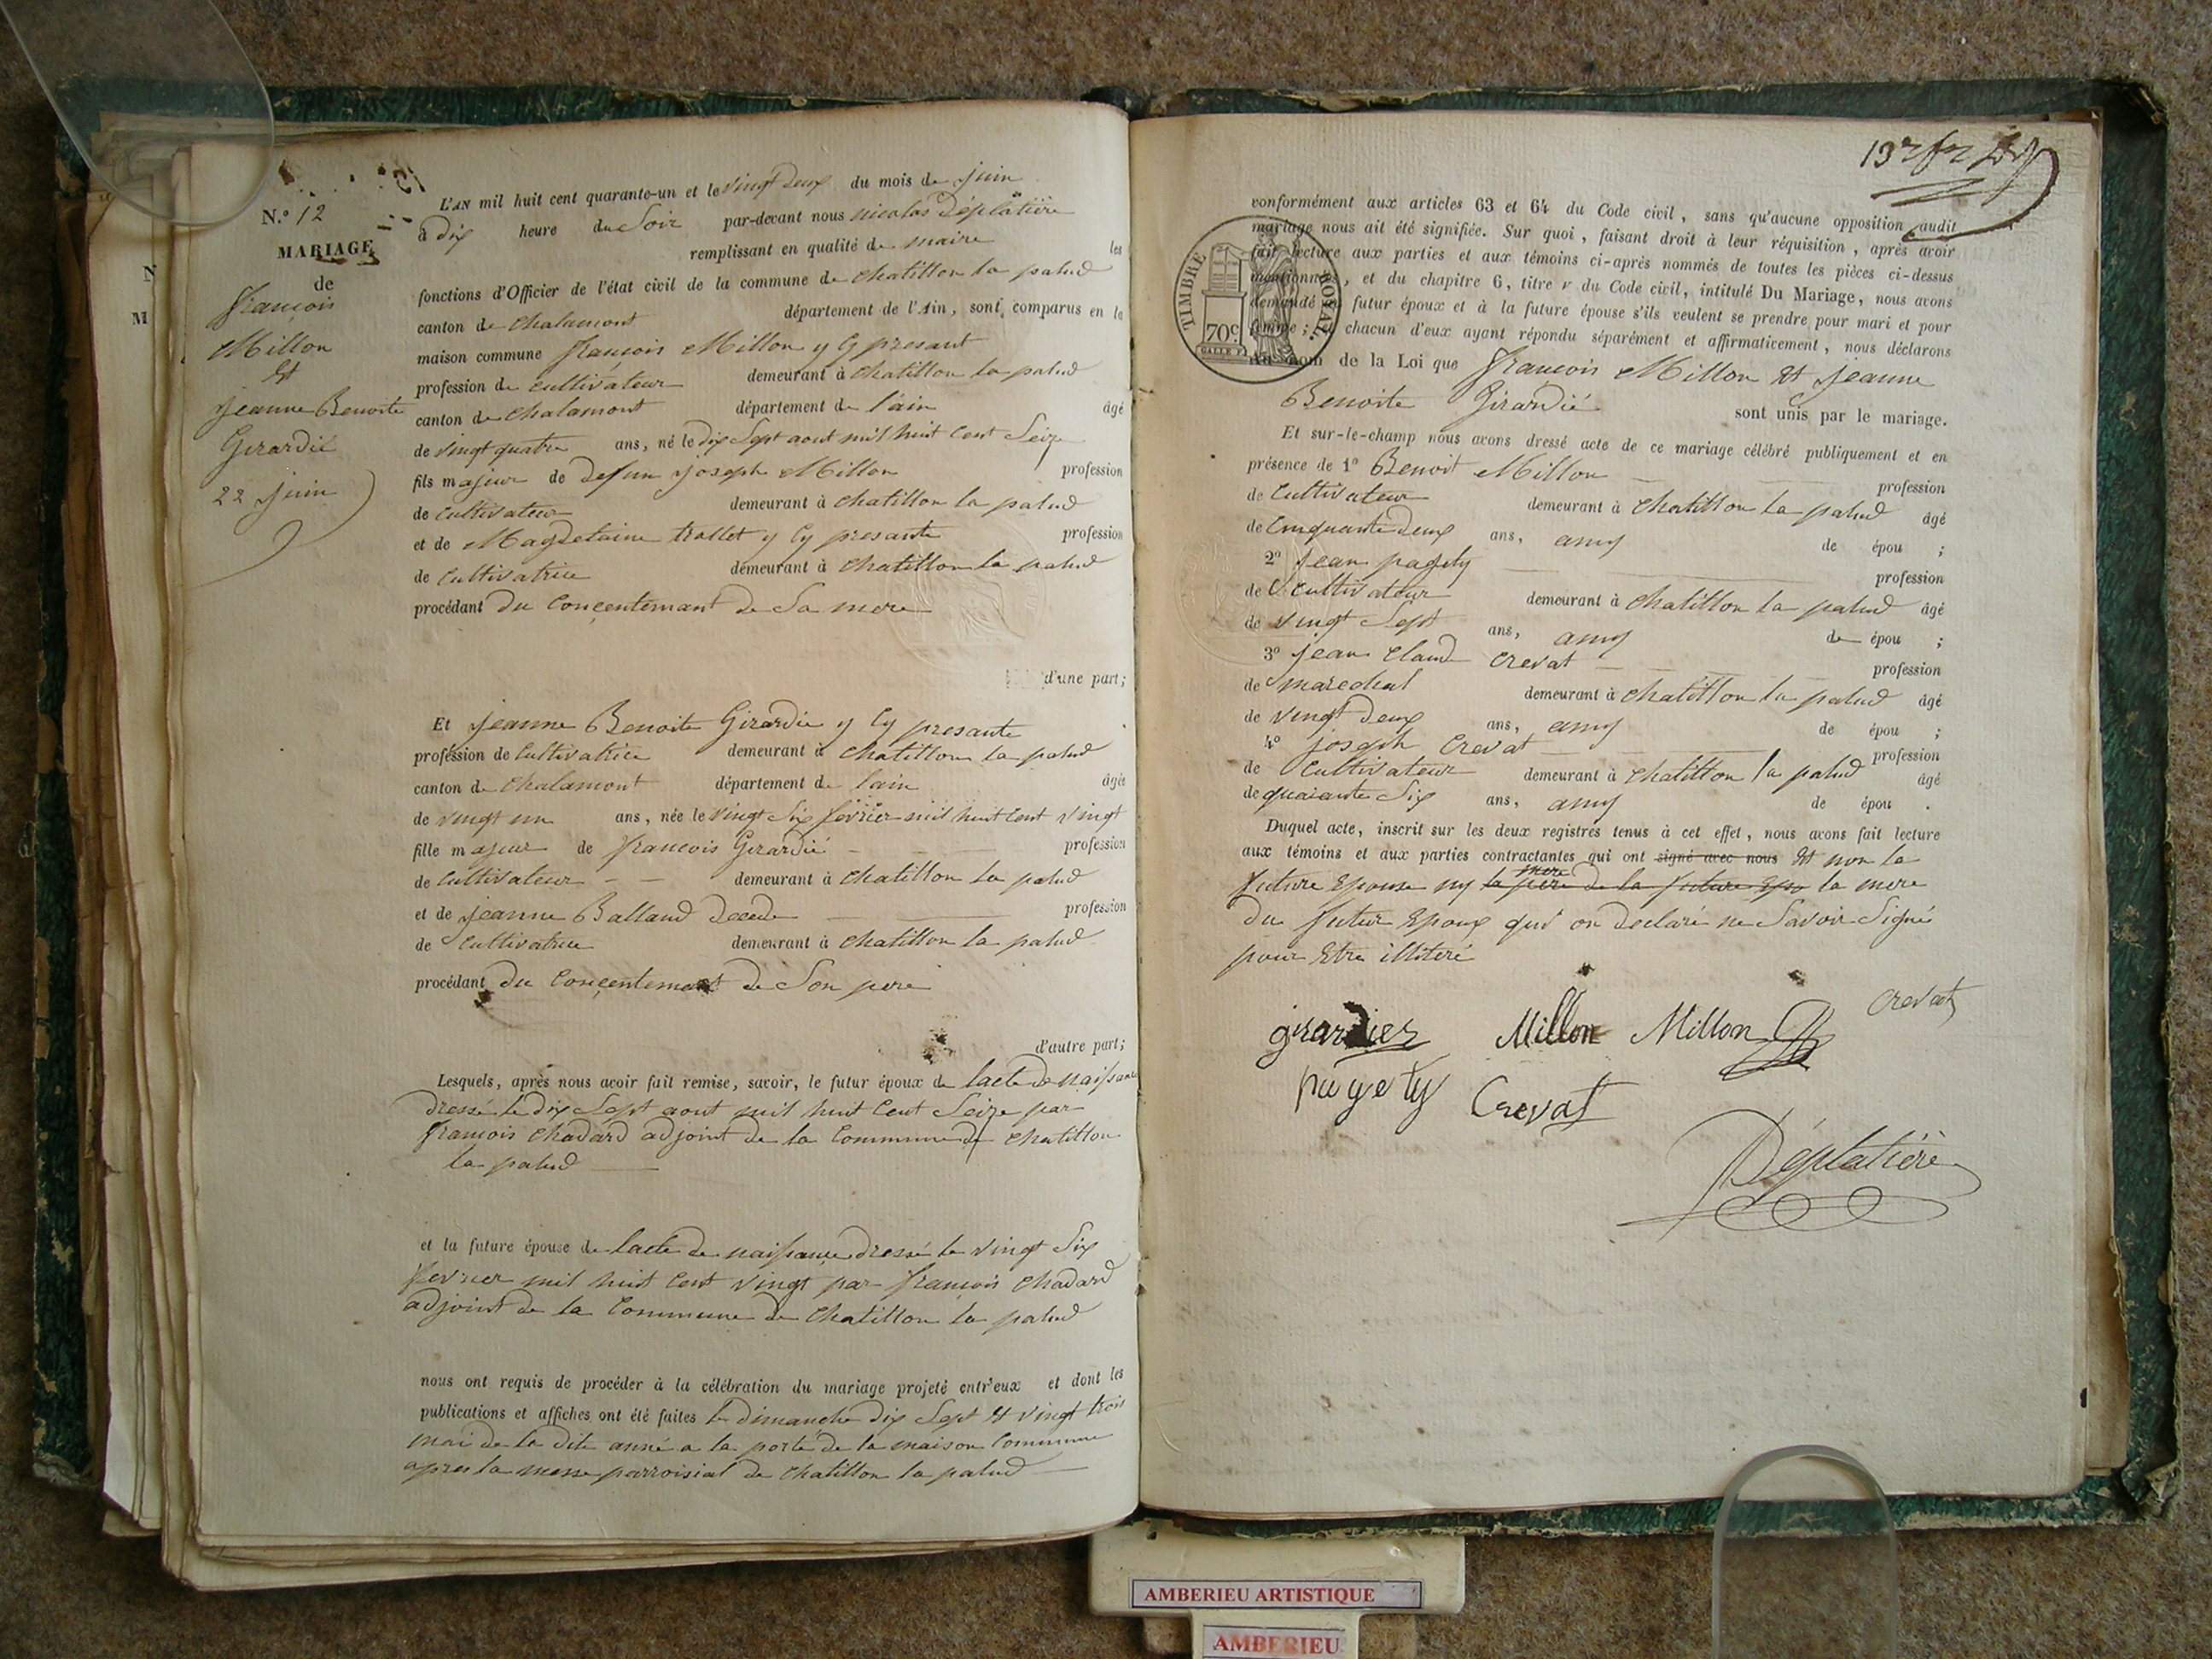 N
M
N.º 12
MARIAGE
de
françois
Millon
Et
Jeanne Benoite
Girardié
22 Juin
L'AN mil huit cent quarante-un et le vingt deux du mois de juin
à dix heure du Soir par-devant nous nicolas Déplatière
remplissant en qualité de maire les
fonctions d'Officier de l'état civil de la commune de chatillon la palud
canton de chalamont département de l'Ain, sont comparus en la
maison commune françois Millon y Cy presant
profession de cultivateur demeurant à chatillon la palud
canton de chalamont département de l'ain âgé
de vingt quatre ans, né le dix Sept aout mil huit cent Seize
fils majeur de Defun joseph Millon profession
de cultivateur demeurant à chatillon la palud
et de Magdelaine trollet y Cy presante profession
de Cultivatrice demeurant à chatillon la palud
procédant du Conçentemant de Sa mere
d'une part;
Et Jeanne Benoite Girardié y Cy presante
profession de Cultivatrice demeurant à chatillon la palud
canton de chalamont département de l'ain âgée
de vingt un ans, née le vingt Six février mil huit Cent vingt
fille majeur de françois Girardié profession
de Cultivateur demeurant à chatillon la palud
et de jeanne Balland Decede profession
de Cultivatrice demeurant à chatillon la palud
procédant du Conçentemant de Son pere
d'autre part;
Lesquels, après nous avoir fait remise, savoir, le futur époux de lacte de naissance
dressé le dix Sept aout mil huit Cent Seize par
françois chadard adjoint de la Commune de chatillon
la palud
et la future épouse de lacte de naissance dressé le vingt Six
fevrier mil huit Cent vingt par françois chadard
adjoint de la Commune de chatillon la palud
nous ont requis de procéder à la célébration du mariage projeté entr'eux et dont les
publications et affiches ont été faites le dimanche dix Sept Et vingt trois
mai de la dite anné a la porte de la maison Commune
apres la messe parroisial de chatillon la palud
conformément aux articles 63 et 64 du Code civil, sans qu'aucune opposition audit
mariage nous ait été signifiée. Sur quoi, faisant droit à leur réquisition, après avoir
fait lecture aux parties et aux témoins ci-après nommés de toutes les pièces ci-dessus
mentionnées, et du chapitre 6, titre v du Code civil, intitulé Du Mariage, nous avons
demandé au futur époux et à la future épouse s'ils veulent se prendre pour mari et pour
femme; et chacun d'eux ayant répondu séparément et affirmativement, nous déclarons
au nom de la Loi que françois Millon Et Jeanne
Benoite Girardié sont unis par le mariage.
TIMBRE ROYAL.
70c
Et sur-le-champ nous avons dressé acte de ce mariage célébré publiquement et en
présence de 1º Benoit Millon profession
de Cultivateur demeurant à chatillon la palud âgé
de Cinquante deux ans, amy de épou ;
2º jean pagety profession
de Cultivateur demeurant à chatillon la palud âgé
de vingt Sept ans, amy de épou ;
3º jean Claud Crevat profession
de marechal demeurant à chatillon la palud âgé
de vingt deux ans, amy de épou ;
4º joseph Crevat profession
de Cultivateur demeurant à chatillon la palud âgé
de quarante Six ans, amy de épou .
Duquel acte, inscrit sur les deux registres tenus à cet effet, nous avons fait lecture
aux témoins et aux parties contractantes qui ont signé avec nous Et non la
mere
future Epouse ny la père de la future Epo la mere
du futur Epoux qui on declaré ne Savoir Signé
pour Etre illiteré
girardier Millon Millon Crevat
pagety Crevat
Déplatière
AMBERIEU ARTISTIQUE
AMBERIEU